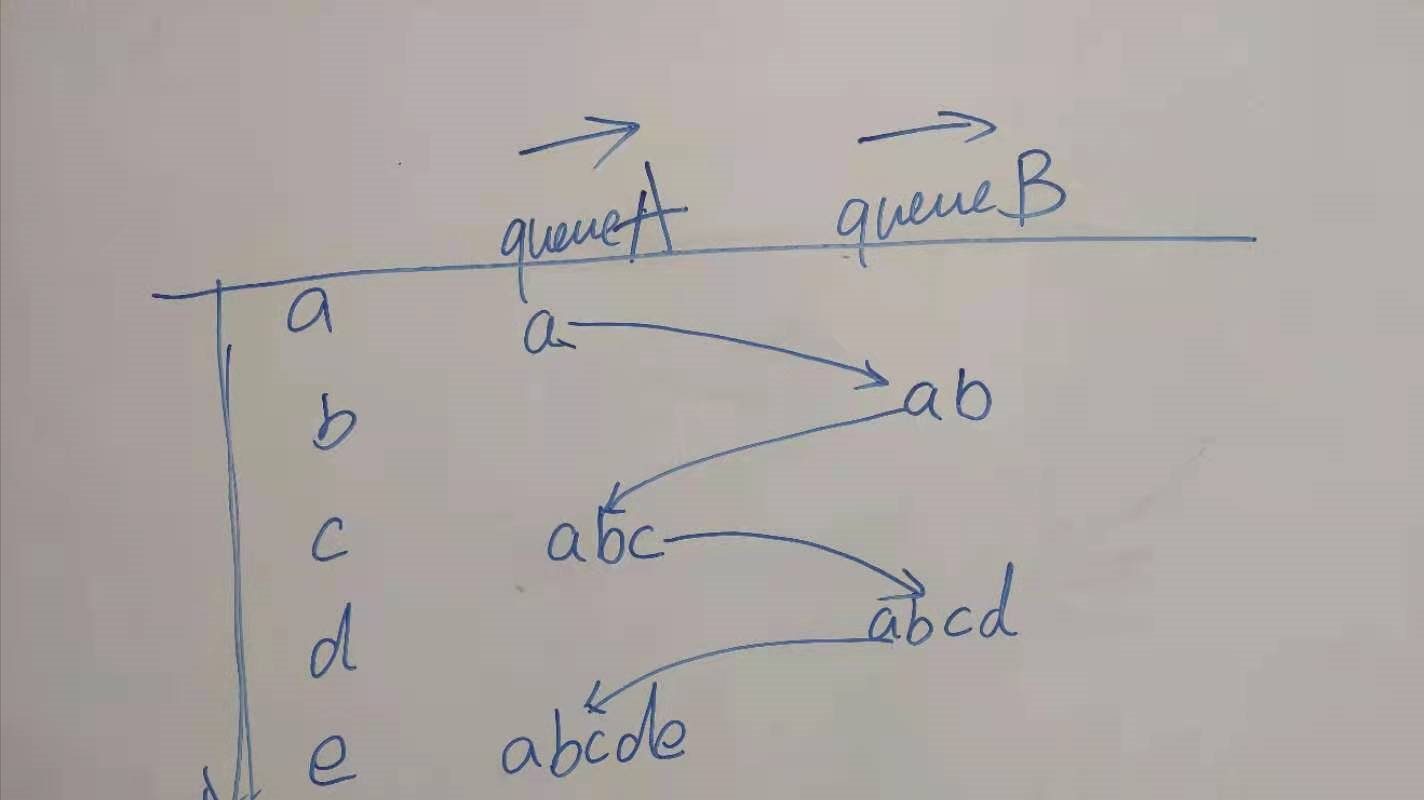 queueA queueB
a a
b ab
c abc
d abcd
e abcde